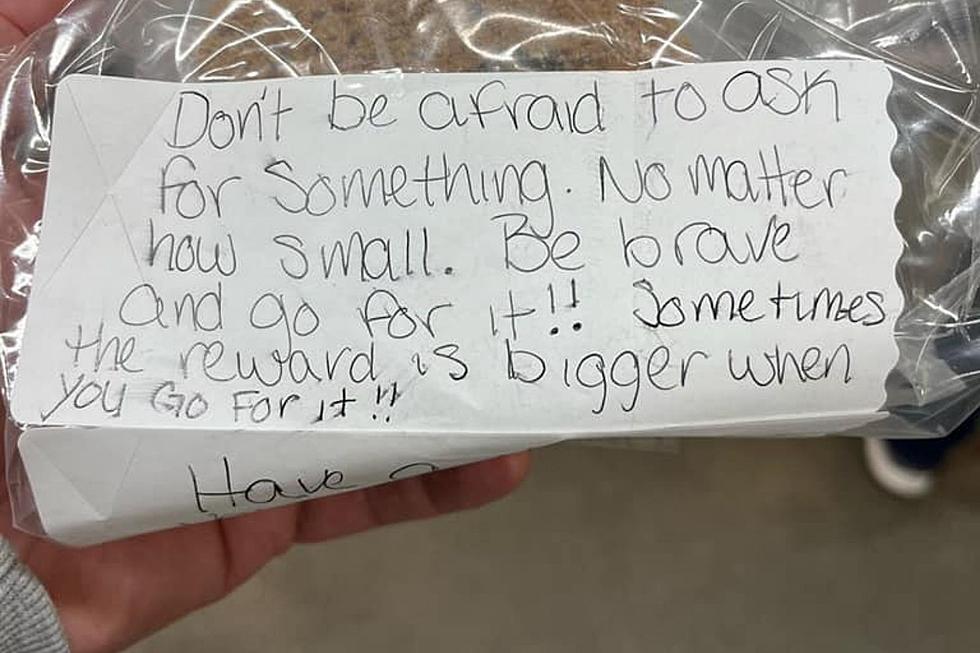 Don't be afraid to ask
for Something. No matter
how small. Be brave
and go for it!! Sometimes
the reward is bigger when
you Go For it!!
Have a